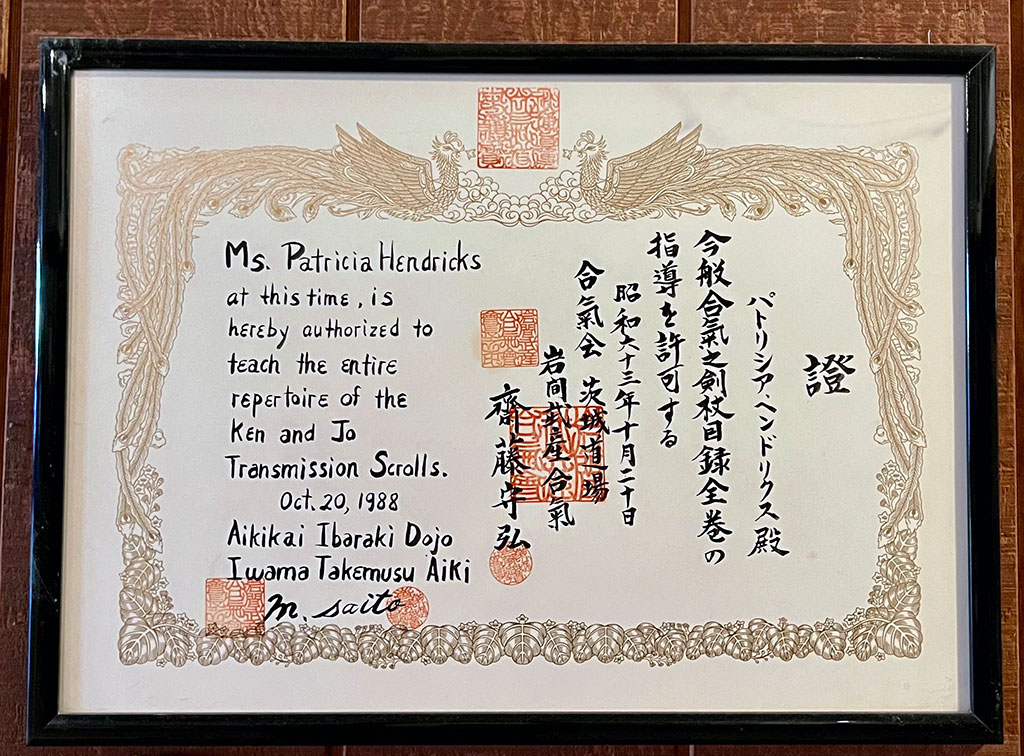 證
パトリシア、ヘンドリクス殿
今般合氣之剣杖目録全巻の
指導を許可する
昭和六十三年十月二十日
合氣会 茨城道場
岩間武産合氣
齋藤守弘
Ms. Patricia Hendricks
at this time, is
hereby authorized to
teach the entire
repertoire of the
Ken and Jo
Transmission Scrolls.
Oct. 20, 1988
Aikikai Ibaraki Dojo
Iwama Takemusu Aiki
M. Saito